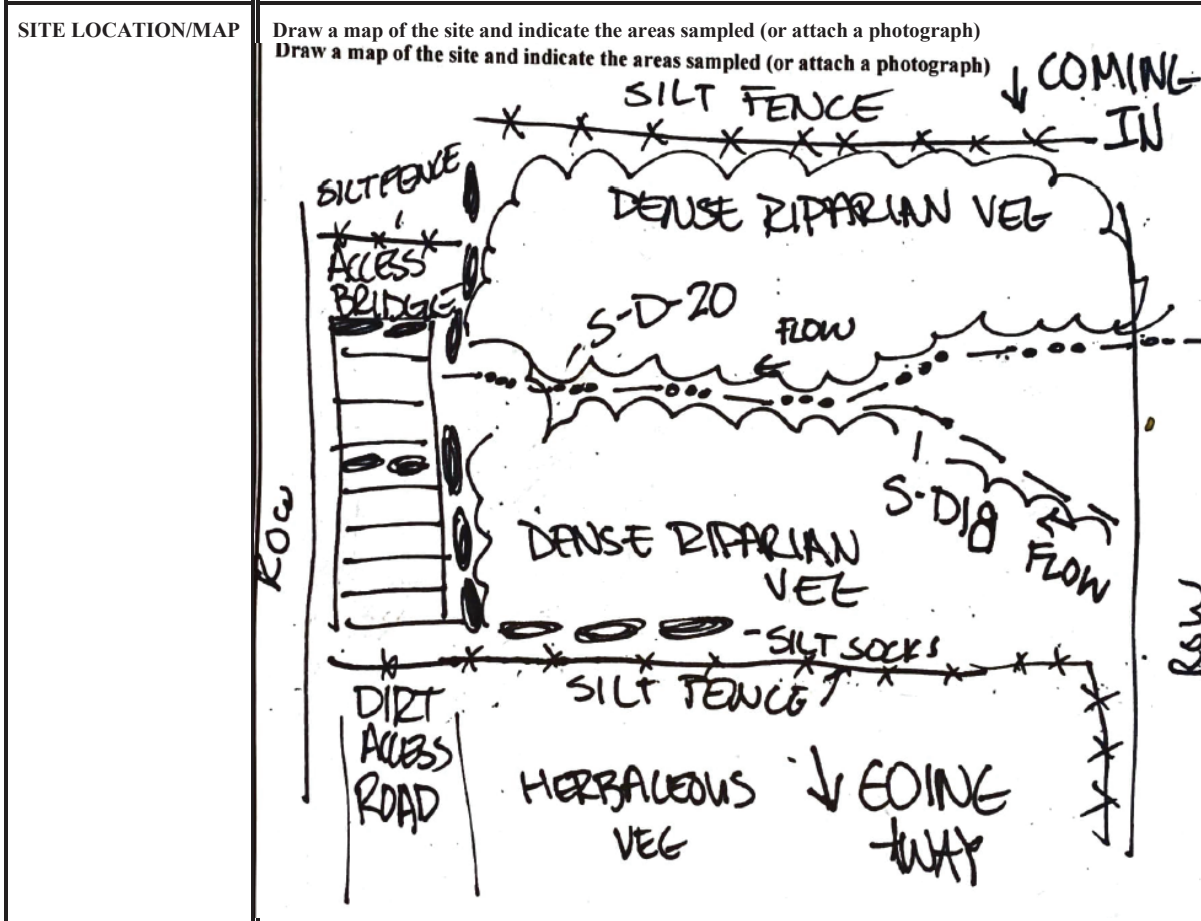 SITE LOCATION/MAP
Draw a map of the site and indicate the areas sampled (or attach a photograph)
Draw a map of the site and indicate the areas sampled (or attach a photograph)
↓ COMING
IN
SILT FENCE
SILT FENCE
DENSE RIPARIAN VEG
ACCESS
BRIDGE
S-D-20
FLOW
S-D18
FLOW
ROW
DENSE RIPARIAN
VEG
ROW
-SILT SOCKS
SILT FENCE
DIRT
ACCESS
ROAD
HERBACEOUS
VEG
↓ GOING
AWAY